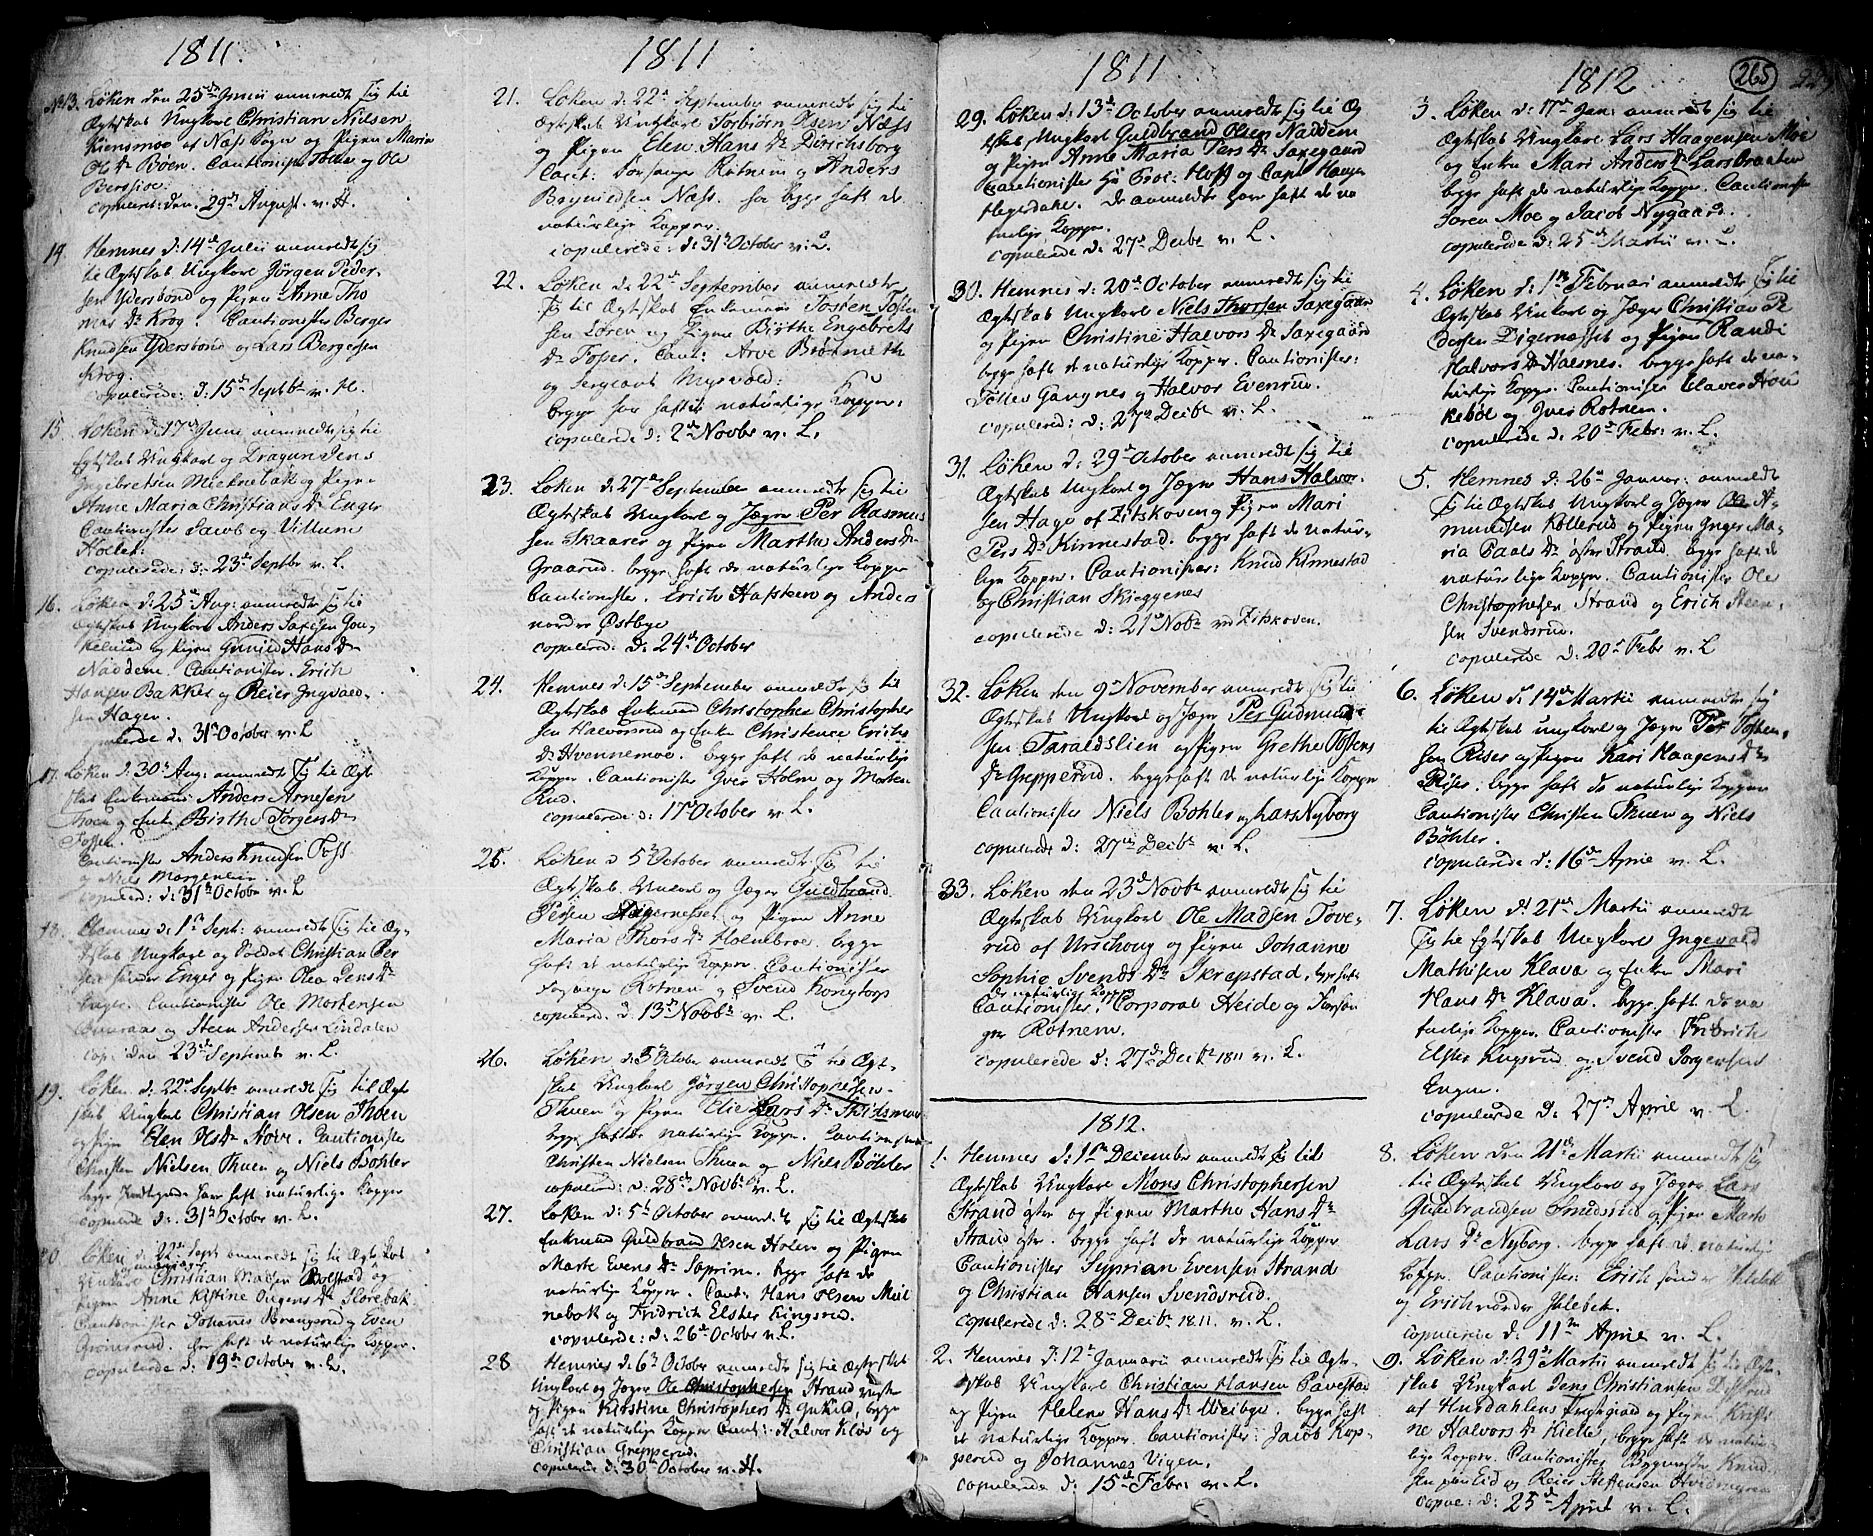 1811.
No 13. Løken den 25de Junii anmeldt sig til
Ægtskab Ungkarl Christian Nielsen
Kiensmoe til Næss Sogn og Pigen Maria
Ols Dr Böen. Cautionister og Ole
Bersioe.
copuleret: den. 29de August. v. H.
14 Hemnes d: 14de Julii anmeldt sig
til Ægtskab Ungkarl Jørgen Peder-
sen Ydersbond og Pigen Anne Tho
mas Dr Krog. Cautionister Berger
Knudsen Ydersbond og Lars Bergersen
Krog.
copulerede: d: 15de Septbr v. H.
15 Løken d: 17de Junii anmeldt sig til
Ægtskab Ungkarl og Dragun Jens
Ingebretsen Mieknebak og Pigen
Anne Maria Christians Dr Enger
Cautionister Jacob og Villum
Hollet:
copulerede: d: 23de Septbr v. L.
16. Løken d: 25de Aug: anmeldt sig til
Ægtskab Ungkarl Anders
og Pigen Gunild Hans Dr
Naddene. Cautionister. Erich
Hansen Bakke og Reier Ingvald-
sen Hagen.
copulerede d. 31te October v. L
17. Løken d. 30te Aug: anmeldt sig til Ægt
skab Enkemand Anders Arnesen
og Enke Birthe Jørgens Dr
Fossen.
Cautionister Anders Knudsen Foss
og Niels Morgenlien
copulered: d: 31te October v. L
18. Hemnes d: 1ste Sept: anmeldt sig til Æg-
tskab Ungkarl og Soldat Christian Per
sen sönder Enger og Pigen Olea Jens Dr
Enger. Cautionister Ole Mortensen
og Steen Andersen Lindalen
cop: den 23de September v. L.
19. Løken d: 22de Septbr anmeldt sig til Ægt
skab Ungkarl Christian Olsen Thuen
og Pigen Elen Ols Dr Hove. Cautionister
Christen Nielsen Thuen og Niels Bøhler
begge have haft naturlige Kopper
copulerede d: 31te October v. L.
20 Løken d: 22de Sept anmeldt sig til Ægtskab
Ungkarl Christian Madsen og
Pigen Anne Kistine Dr
Cautionister Johanes og Even
Grönsrud. har haft de naturlige Kopper.
copulerede d: 19de October v. L.
1811
21. Løken d: 22de September anmeldt sig til
Ægtskab Ungkarl Torbiørn Olsen Næss
og Pigen Elen Hans Dr Dirichsborg
Caut: Rotnem og Anders
Bøynildsen Næss. har begge haft de
naturlige Kopper.
copulerede: d: 31te October v. L.
22. Løken d: 22de September anmeldt
sig til Ægtskab Enkemand Tosten Tosten
sen Løren og Pigen Birthe Engebrets
Dr Fosser. Caut: Arve Børneth
og Sergeant Myrvold:
begge har haft de naturlige Kopper:
copulerede d: 2de Novbr v. L.
23. Løken d: 27de September anmeldt sig til
Ægtskab Ungkarl og Jæger Per Rasmus
sen Skaarer og Pigen Marthe Anders Dr
Graarud. begge haft de naturlige Kopper
Cautionister. Erich Hafsteen og Anders
nordre Østbye
copulered: d: 24de October
24. Hemnes d: 15de September anmeldt sig til
Ægtskab Enkemand Christopher Christopher
sen Halvorsrud og Enke Christence Erichs
Dr Hvennemoe. begge haft de naturlige
Kopper. Cautionister Iver Holm og Morten
Rud.
copulerede d: 17de October v. L.
25. Løken d 5te October anmeldt sig til
Ægtskab Ungkarl og Jæger Guldbrand
Persen Digernesset og Pigen Anne
Maria Thors Dr Holmebroe. begge
haft de naturlige Kopper. Cautionister
Rotnem og Svend Kongtorp
copulered. d. 13de Novbr v. L.
26. Løken d: 5te October anmeldt sig til Ægt-
skab Ungkarl Jørgen Christophersen
Thuen og Pigen Elie Lars Dr
begge haft de naturlige Kopper. Cautionister
Christen Nielsen Thuen og Niels Bøhler
copulered: d: 28de Novbr v. L.
27. Løken d: 5te October anmeldt sig til Ægtskab
Enkemand Guldbrand Olsen Holm og Pigen
Marte Evens Dr Saprim. begge haft de
naturlige Kopper. Caut: Hans Olsen Miek
nebak og Fridrich Elster Kingsrud.
copulerede: d: 26de October v. L.
28 Hemnes d: 6te October anmeldt sig til Ægtskab
Ungkarl og Jæger Ole Christophersen Strand vestre
og Pigen Kirstine Christophers Dr begge
haft de naturlige Kopper Caut: Halvor Kløv og
Christian Grepperud.
copulerede d: 30te October v. H.
1811
29. Løken d: 13de October anmeldt sig til Æg
tskab, Ungkarl Guldbrand Olsen Naddem
og Pigen Anne Maria Pers Dr Saxegaard
Cautionister Proc: Hoff og Capt Hauger
Hegedahl. De anmeldte have haft de na
turlige Kopper.
copulerede d: 27de Decbr v. L.
30. Hemnes d: 20de October anmeldt sig til
Ægtskab Ungkarl Niels Thorsen Saxegaard
og Pigen Christine Halvors Dr Saxegaard
begge haft de naturlige Kopper. Cautionister:
Tollev Gangnes og Halvor Evenrud.
copulered: d: 27de Decbr v. L.
31. Løken d. 29de October anmeldt sig til
Ægtskab Ungkarl og Jæger Hans Halvor-
sen Hage af Eitskoven og Pigen Mari
Pers Dr Kinnestad. begge haft de natur-
lige Kopper. Cautionister: Knud Kinnestad
og Christian Skieggenes
copulerede d. 21de Novbr ved Eitskoven.
32. Løken den 9de November anmeldt sig til
Ægtskab Ungkarl og Jæger Per Gudmund
sen Taraldslien og Pigen Grethe Tostens
Dr Grepperud. begge haft de naturlige Kopper
Cautionister Niels Bohler og Lars Nyborg
copulerede d: 27de Decbr v. L.
33. Løken den 23de Novbr anmeldt sig til
Ægtskab Ungkarl Ole Madsen Tove-
rud af Urschoug og Pigen Johanne
Sophie Svends Dr Skrepstad. begge haft
de naturlige Kopper
Cautionister. Corporal Heide og Torson
ger Rotnem.
copulerede d: 27de Decbr 1811 v. L.
1812.
1. Hemnes d: 1ste December anmeldt sig til
Ægtskab Ungkarl Mons Christophersen
Strand østre og Pigen Marthe Hans Dr
Strand østr. begge haft de naturlige Kopper
Cautionister Syprian Evensen Strand
og Christian Hansen Svendsrud.
copulerede d: 28de Decbr 1811. v. L.
2. Hemnes d: 12te Januarii anmeldt sig til Ægt-
skab Ungkarl Christian Hansen Pavestad
og Pigen Helene Hans Dr begge haft
de naturlige Kopper. Cautionister: Jacob Kop-
perud og Johannes Vigen.
copulerede d: 15de Febr: v. L.
1812
265
3. Løken d: 17de Jan: anmeldt sig til
Ægtskab Ungkarl Lars Haagensen Moe
og Enke Mari Anders Dr Larsbraaten
begge haft de naturlige Kopper. Cautionister
Søren Moe og Jacob Nygaard.
copulerede d: 25de Martii v. L.
4. Løken d: 1ste Februari anmeldt sig til
Ægtskab Ungkarl og Jæger Christian Pe
dersen Digernesset og Pigen Randi
Halvors Dr Halsnes. begge haft de na-
turlige Kopper. Cautionister Claves Hou
kebøl og Iver Rotnem.
copulerede d. 20de Febr: v. L.
5. Hemnes d: 26de Januar: anmeldt
sig til Ægtskab Ungkarl og Jæger Ole A-
mundsen Kollerud og Pigen Inger Ma-
ria Paals Dr østre Strand. begge haft de
naturlige Kopper. Cautionister Ole
Christophersen Strand og Erich Steen-
sen Svendsrud.
copulerede d: 20de Febr v. L
6. Løken d: 14de Martii anmeldt sig
til Ægtskab Ungkarl og Jæger Per Tosten-
sen Riser og Pigen Kari Haagens Dr
Riser. begge haft de naturlige Kopper
Cautionister Christen Thuen og Niels
Bøhler.
copulerede d: 16de April v. L.
7. Løken d: 21de Martii anmeldt
sig til Ægtskab Ungkarl Ingevald
Mathisen Klava og Enken Mari
Hans Dr Klava. begge haft de na
turlige Kopper. Cautionister Fridrich
Elster Kingsrud og Svend Jørgensen
Engen.
copulerede d. 27de April v. L.
8. Løken den 21de Martii anmeldt sig
til Ægtskab Ungkarl og Jæger Lars
Guldbrandsen Smedsrud og Pigen Marte
Lars Dr Nyborg. begge haft de naturlige
Kopper. Cautionister: Erich sönder
og Erich nordre Halebek.
copulerede d: 11te April v. L.
9. Løken d: 29de Martii anmeldt sig til Ægt-
skab Ungkarl Jens Christiansen
af Hurdahlens Prestegield og Pigen Kristi
ne Halvors Dr Kielle, begge haft de natur-
lige Kopper. Cautionister Knud
Eid og Reier Steffensen
copul: d: 25de April v. L.